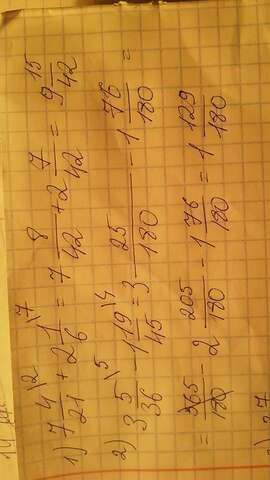 1) 7 4/21 \2 + 2 1/6 \7 = 7 8/42 + 2 7/42 = 9 15/42
2) 3 5/36 \5 - 1 19/45 \4 = 3 25/180 - 1 76/180 =
= 2 205/180 - 1 76/180 = 1 129/180